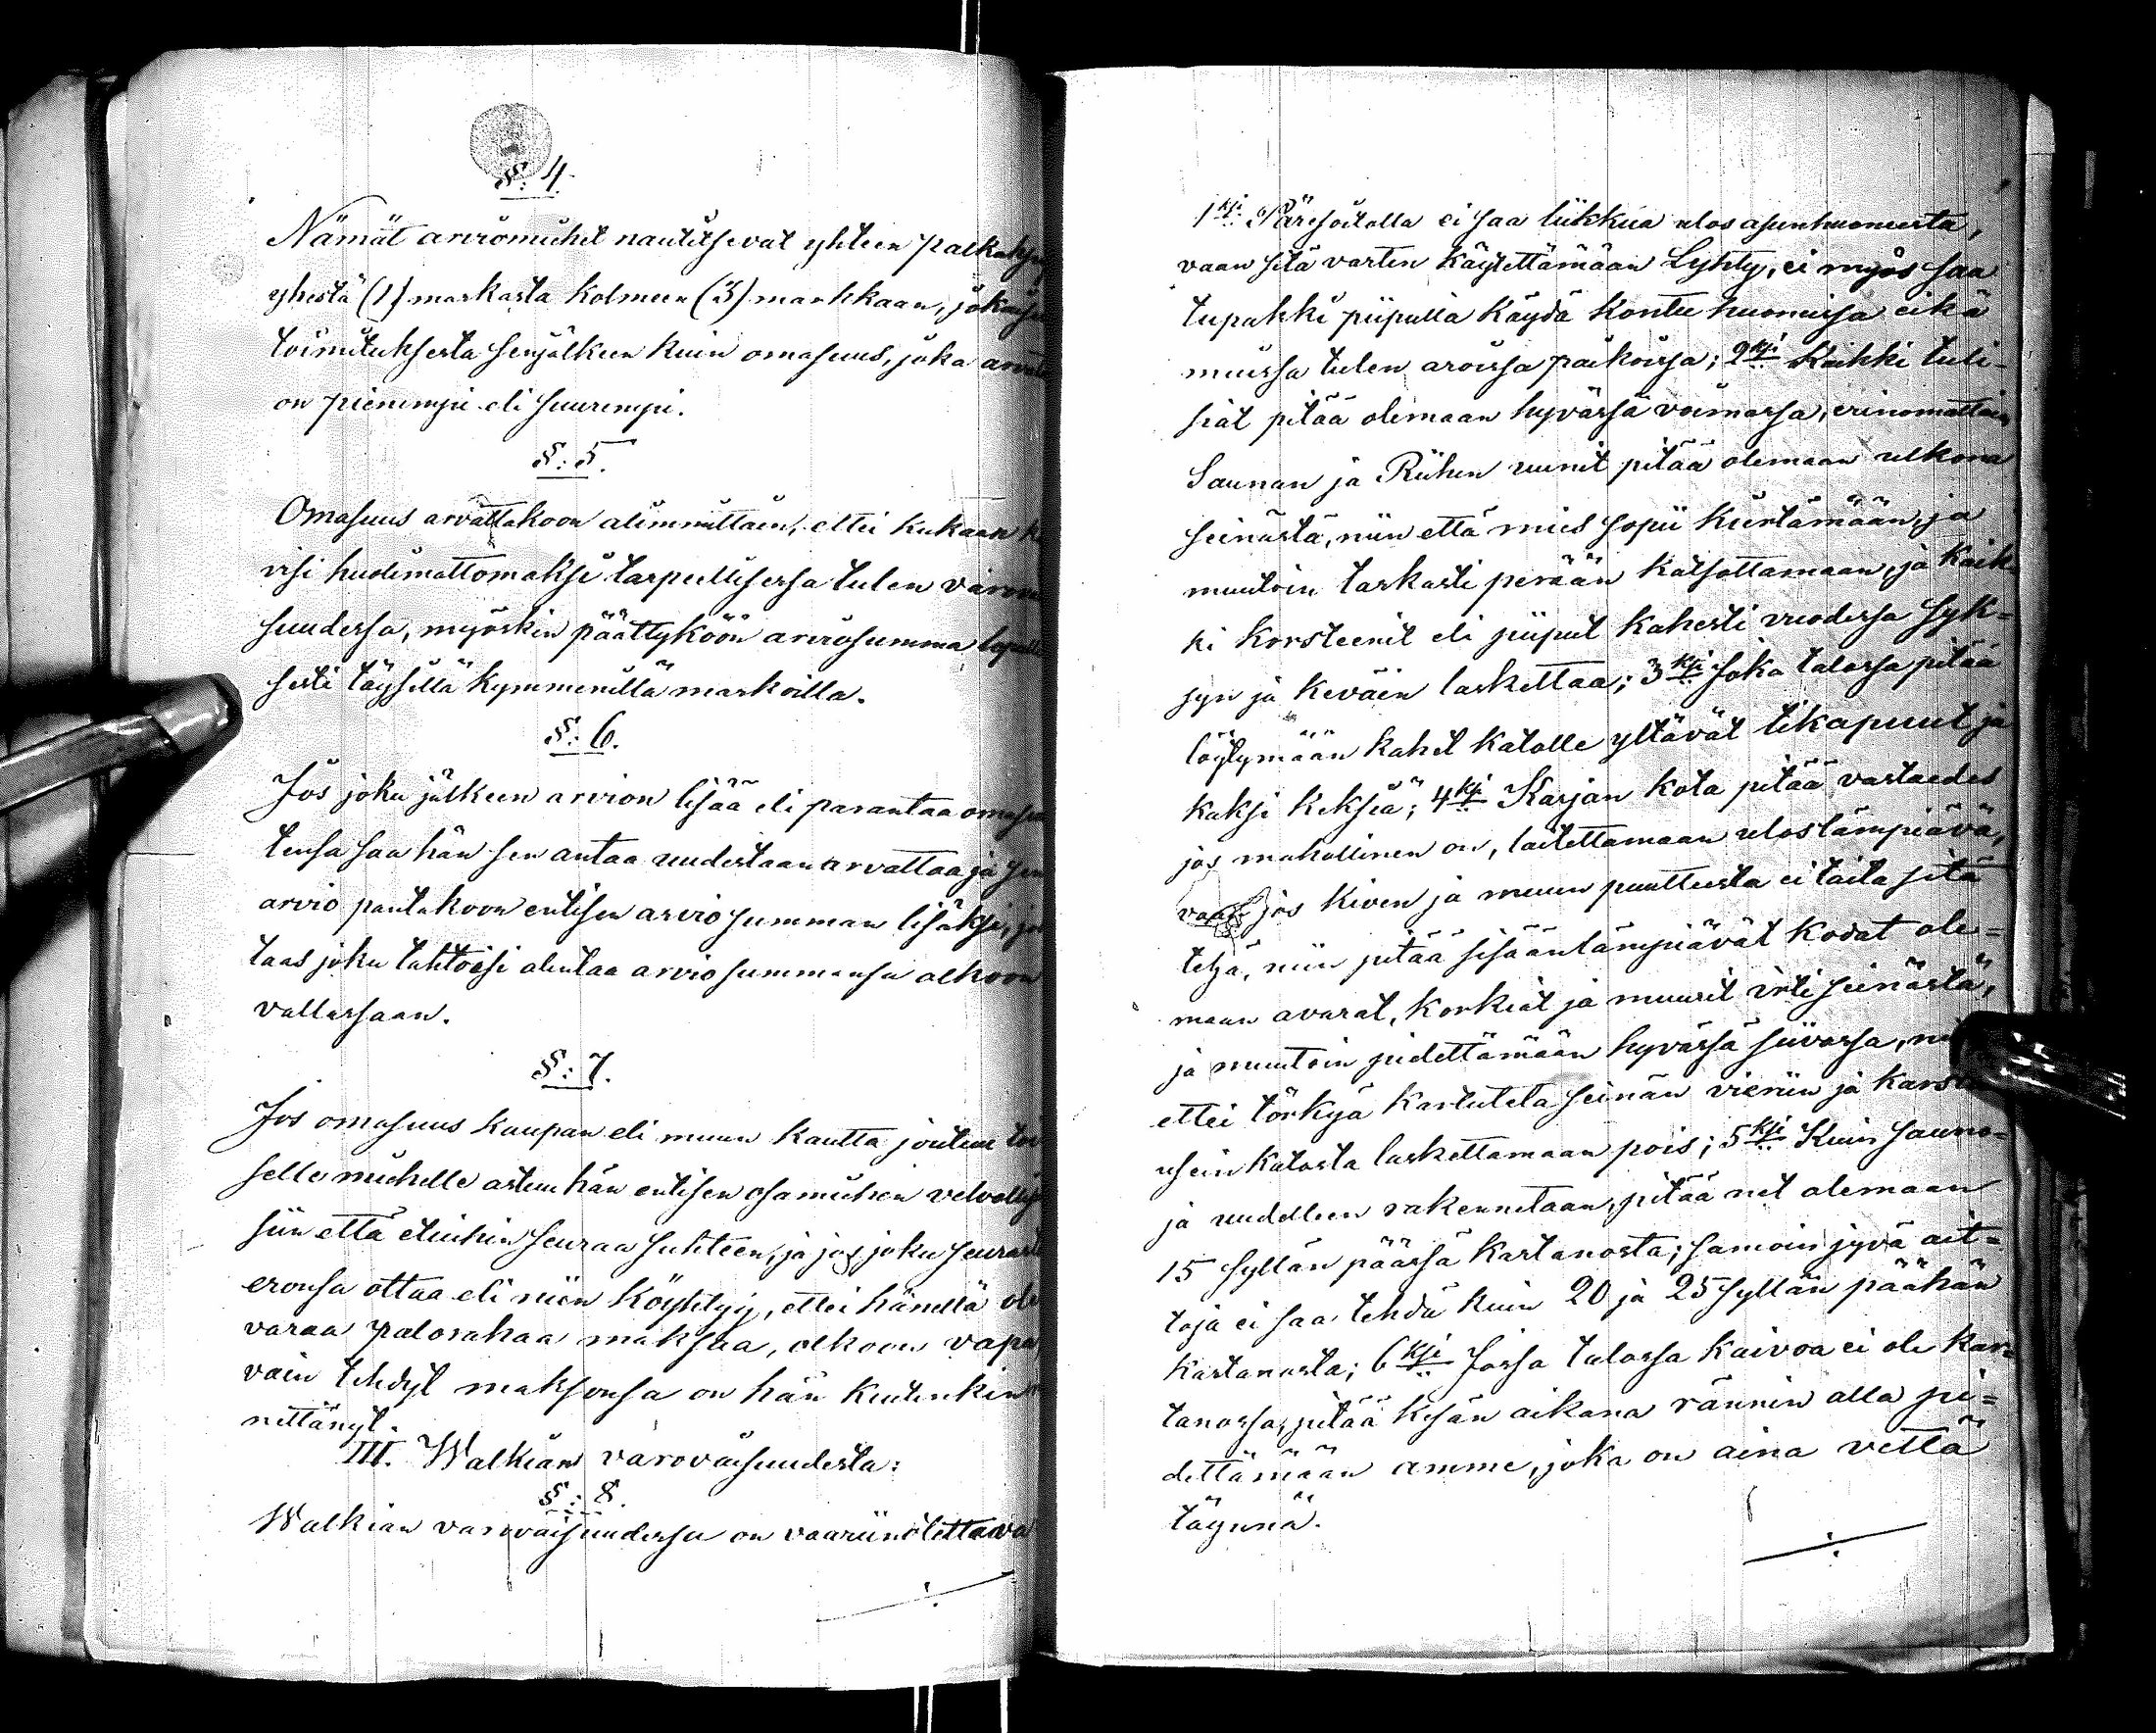 §: 4.
Nämät arviomiehet nautitsevat yhteen palkaksi
yhestä (1) markasta kolmeen (3) markkaan, jokaises
toimituksesta senjälkeen kuin omasuus, joka arvat
on pienempi eli suurempi.
§: 5.
Omasuus arvattakoon alimmittain, ettei kukaan
visi huolimattomaksi tarpeellisessa tulen varovai
suudessa, myöskin päättyköön arviosumma lopulli
sesti täysillä kymmenillä markoilla.
§: 6.
Jos joku jälkeen arvion lisää eli parantaa omasuu
tensa saa hän sen antaa uudestaan arvattaa ja sen
arvio pantakoon entisen arvio summan lisäksi, jos
taas joku tahtoisi alentaa arvio summansa olkoon
vallassaan.
§: 7.
Jos omasuus kaupan eli muun kautta joutuu toi
selle miehelle astuu hän entisen osamiehen velvollisuu
siin että etuihin seuraa suhteen, ja jos joku seurasta
eronsa ottaa eli niin köyhtyy, ettei hänellä ole
varaa palorahaa maksaa, olkoon vapa
vain tehdyt maksonsa on hän kuitenkin
nettänyt.
III. Walkian varovaisuudesta:
§: 8.
Walkian varovaisuudessa on vaariinotettava
1ksi Päresoitolla ei saa liikkua ulos asunhuoneesta,
vaan sitä varten käytettämään Lyhty, ei myös saa
tupakki piipulla käydä kontu huoneissa eikä
muissa tulen aroissa paikoissa; 2ksi Kaikki tuli-
siat pitää olemaan hyvässä voimassa, erinomattain
Saunan ja Riihen uunit pitää olemaan ulkona
seinästä, niin että mies sopii kiertämään, ja
muutoin tarkasti perään katsottamaan, ja kaik-
ki korsteenit eli piiput kahesti vuodessa syk=
syn ja keväin laskettaa; 3ksi Joka talossa pitää
löytymään kahet katolle yltävät tikapuut ja
kaksi keksiä; 4ksi Karjan kota pitää vastaedes
jos mahollinen on, laitettamaan uloslämpiävä,
vaan jos kiven ja muun puutteesta ei taita sitä
tehä, niin pitää sisäänlämpiävät kodat ole=
maan avarat, korkiat ja muurit irti seinästä,
ja muutoin pidettämään hyvässä siivossa, niin
ettei törkyä kartuteta seinän vieriin ja karsta
usein katosta laskettamaan pois; 5ksi Kuin sauno=
ja uudelleen rakennetaan, pitää net olemaan
15 syllän päässä kartanosta; samoin jyvä ait=
toja ei saa tehdä kuin 20 ja 25 syllän päähän
kartanosta; 6ksi Jossa talossa kaivoa ei ole kar=
tanossa, pitää kesän aikana rännin alla pi=
dettämään amme, joka on aina vettä
täynnä.